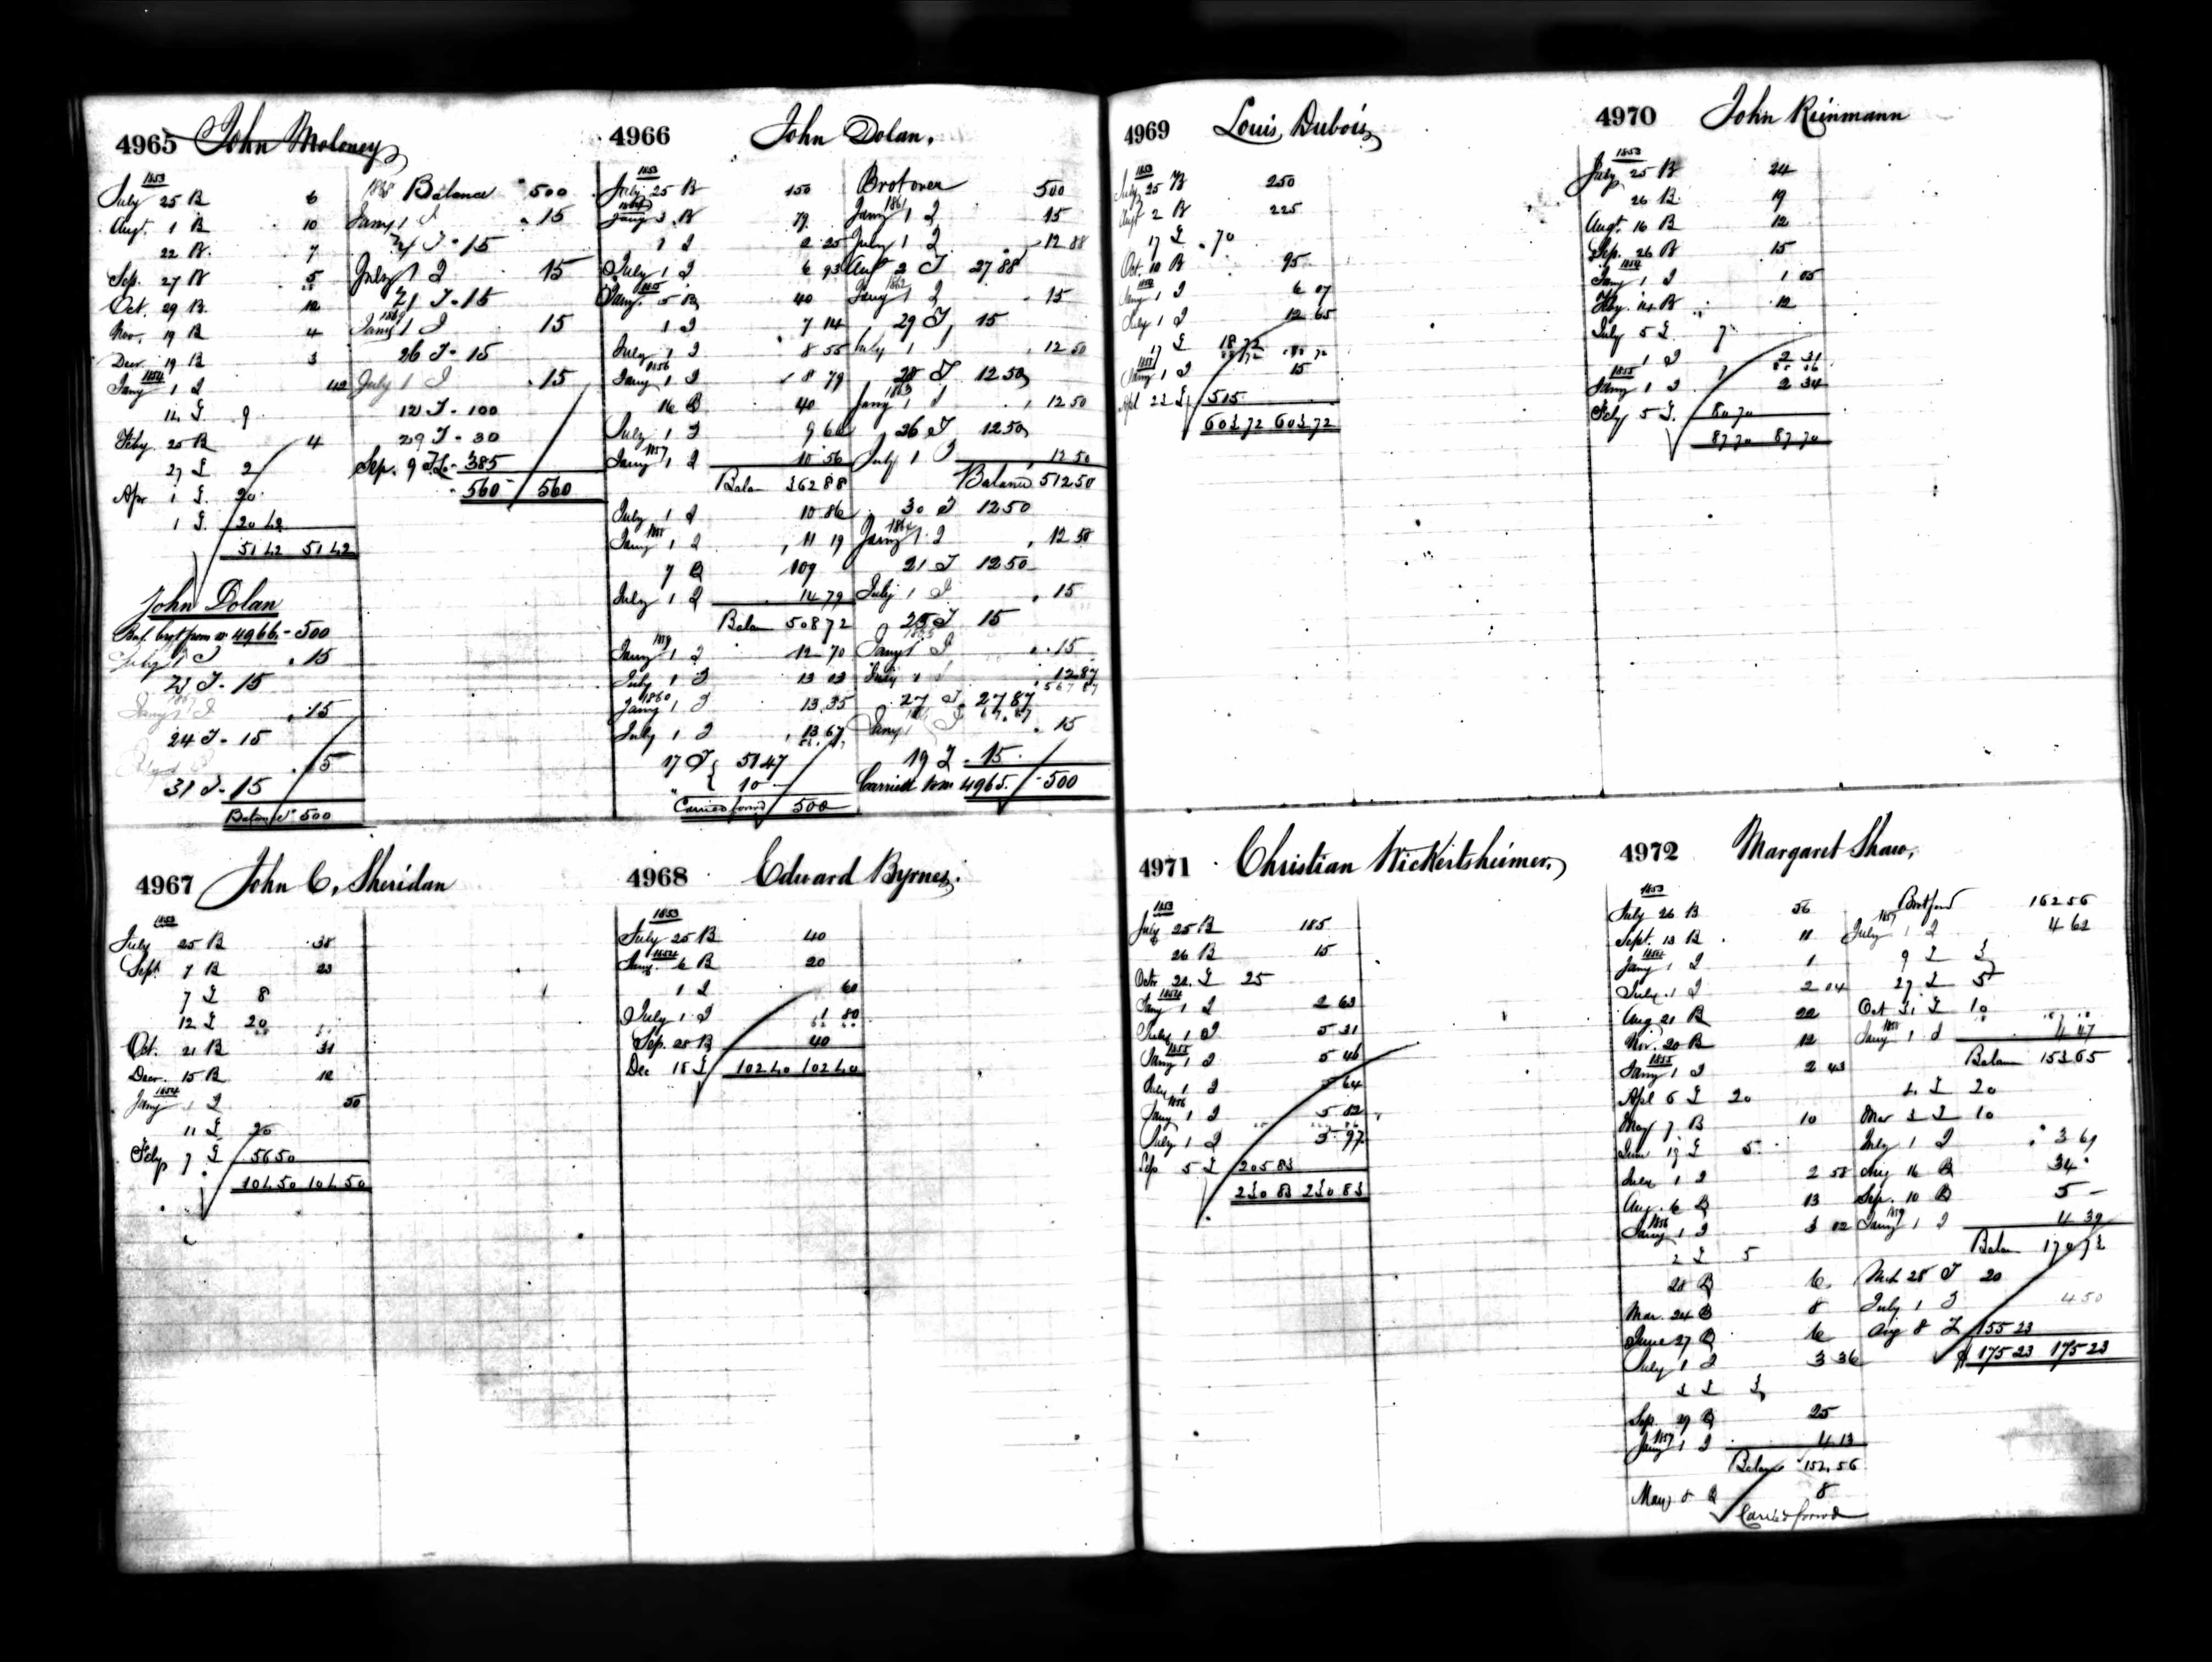 4965 John Moloney
1853
July 25 B 6
Augt. 1 B 10
22 B. 7
Sep. 27 B 5
Oct. 29 B. 12
Nov. 19 B 4
Decr. 19 B 3
1854
Jany 1 I 42
14 £ 9
Feby. 25 B 4
27 £ 2
Apr 1 £ 20
1 £. 20 42
51 42 51 42
John Dolan
Bal. brgt from a/c 4966 - 500
July 1 I 15
21 I - 15
Jany 1 I 15
24 I - 15
15
31 I - 15
Balance 500
1868 Balance 500
Jany 1 I 15
24 I - 15
July 1 I 15
21 I - 15
1869
Jany 1 I 15
26 I - 15
July 1 I 15
12 I - 100
29 I - 30
Sep. 9 I - 385
560 560
4966 John Dolan.
1853
July 25 B 150
1854
Jany 3 B 79
1 I 2 25
July 1 I 6 93
1855
Jany. 5 B 40
1 I 7 14
July 1 I 8 55
1856
Jany 1 I 8 79
16 B 40
July 1 I 9 66
1857
Jany 1 I 10 56
Balan 362 88
July 1 I 10 86
1858
Jany 1 I 11 19
7 B 109
July 1 I 14 79
Balan 508 72
1859
Jany 1 I 12 70
July 1 I 13 03
1860
Jany 1 I 13.35
July 1 I 13 67
17 I 51 47
10
Carried forwd 500
Brot over 500
1861
Jany 1 I 15
July 1 I 12 88
Aug 2 I 27 88
1862
Jany 1 I 15
29 I 15
July 1 I 12 50
28 I 12 50
1863
Jany 1 I 12 50
26 I 12 50
July 1 I 12 50
Balance 512 50
30 I 12 50
1864
Jany 1 I 12 50
21 I 12 50
July 1 I 15
25 I 15
1865
Jany 1 I 15
July 1 I 12.87
567 87
27 I 27 87
Jany 1 I 15
19 I 15
Carried to no. 4965. 500
4967 John C. Sheridan
1853
July 25 B 38
Sept. 7 B 23
7 £ 8
12 £ 20
Oct. 21 B 31
Decr. 15 B 12
1854
Jany 1 I 50
11 £ 20
Feby 7 £ 56 50
104 50 104 50
4968 Edward Byrnes.
1853
July 25 B 40
1854
Jany. 6 B 20
1 I 60
July 1 I 1 80
Sep. 28 B 40
Dec 18 £ 102 40 102 40
4969 Louis Dubois
1853
July 25 B 250
Augt 2 B 225
17 £ 70
Oct. 10 B 95
1854
Jany 1 I 6 07
July 1 I 12 65
17 £ 18 72
1855
Jany 1 I 15
Apl 23 £ 515
603 72 603 72
4970 John Reinmann
1853
July 25 B 24
26 B 19
Augt. 16 B 12
Sep. 26 B 15
1854
Jany 1 I 1 05
Feby. 14 B 12
July 5 £ 7
1 I 2 31
1855
Jany 1 I 2 34
Feby 5 £ 80 70
87 70 87 70
4971 Christian Wickertsheimer.
1853
July 25 B 185
26 B 15
Octr 22 £ 25
1854
Jany 1 I 2 63
July 1 I 5 31
1855
Jany 1 I 5 46
July 1 I 5 64
1856
Jany 1 I 5 82
July 1 I 5 97
Sep 5 £ 205 83
230 83 230 83
4972 Margaret Shaw.
1853
July 26 B 56
Sept. 13 B 11
1854
Jany 1 I 1
July 1 I 2 04
Aug 21 B 22
Nov. 20 B 12
1855
Jany 1 I 2 43
Apl 6 £ 20
May 7 B 10
June 19 £ 5
July 1 I 2 58
Aug. 6 B 13
1856
Jany 1 I 3 02
2 £ 5
28 B 6
Mar. 24 B 8
June 27 B 6
July 1 I 3 36
3 £ 3
Sep. 29 B 25
1857
Jany 1 I 4 13
Balance 154.56
May 8 B 8
Carried forwd
Brot forwd 162 56
1857
July 1 I 4 62
9 £ 3
27 £ 5
Oct 31 £ 10
1858
Jany 1 I 4 47
Balan 153 65
4 £ 20
Mar 3 £ 10
July 1 I 3 69
Aug 16 B 34
Sep. 10 B 5
1859
Jany 1 I 4 39
Balan 170 73
Mch 28 I 20
July 1 I 4 50
Aug 8 £ 155 23
175 23 175 23